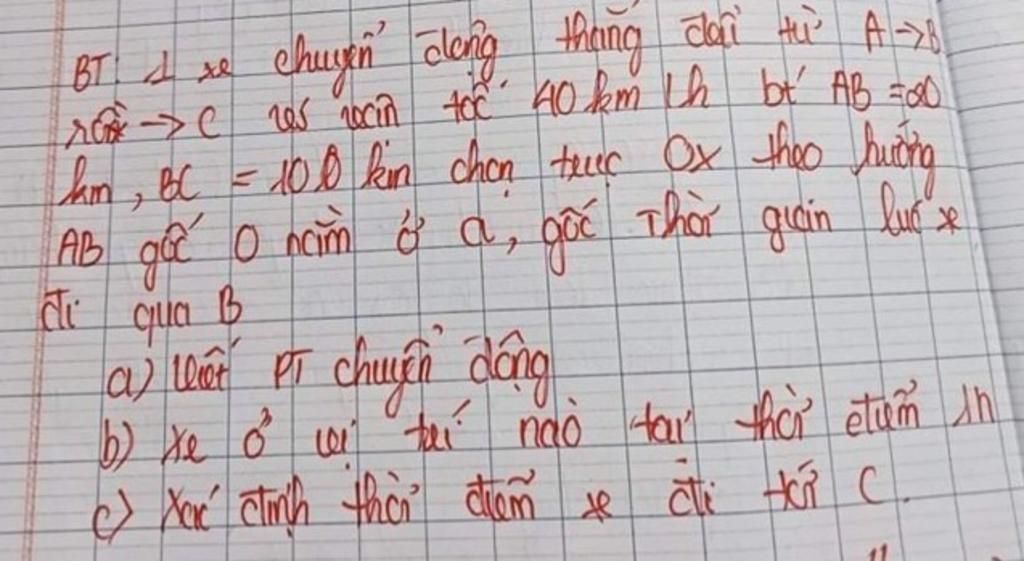 BT: 1 xe chuyển động thẳng dài từ A → B
rồi → C với vận tốc 40 km / h bt AB = 20
km , BC = 100 km chọn trục Ox theo hướng
AB gốc O nằm ở a, gốc Thời gian lúc xe
đi qua B
a) Viết PT chuyển động
b) xe ở vị trí nào tại thời điểm 1h
c) Xác định thời điểm xe đi tới C.